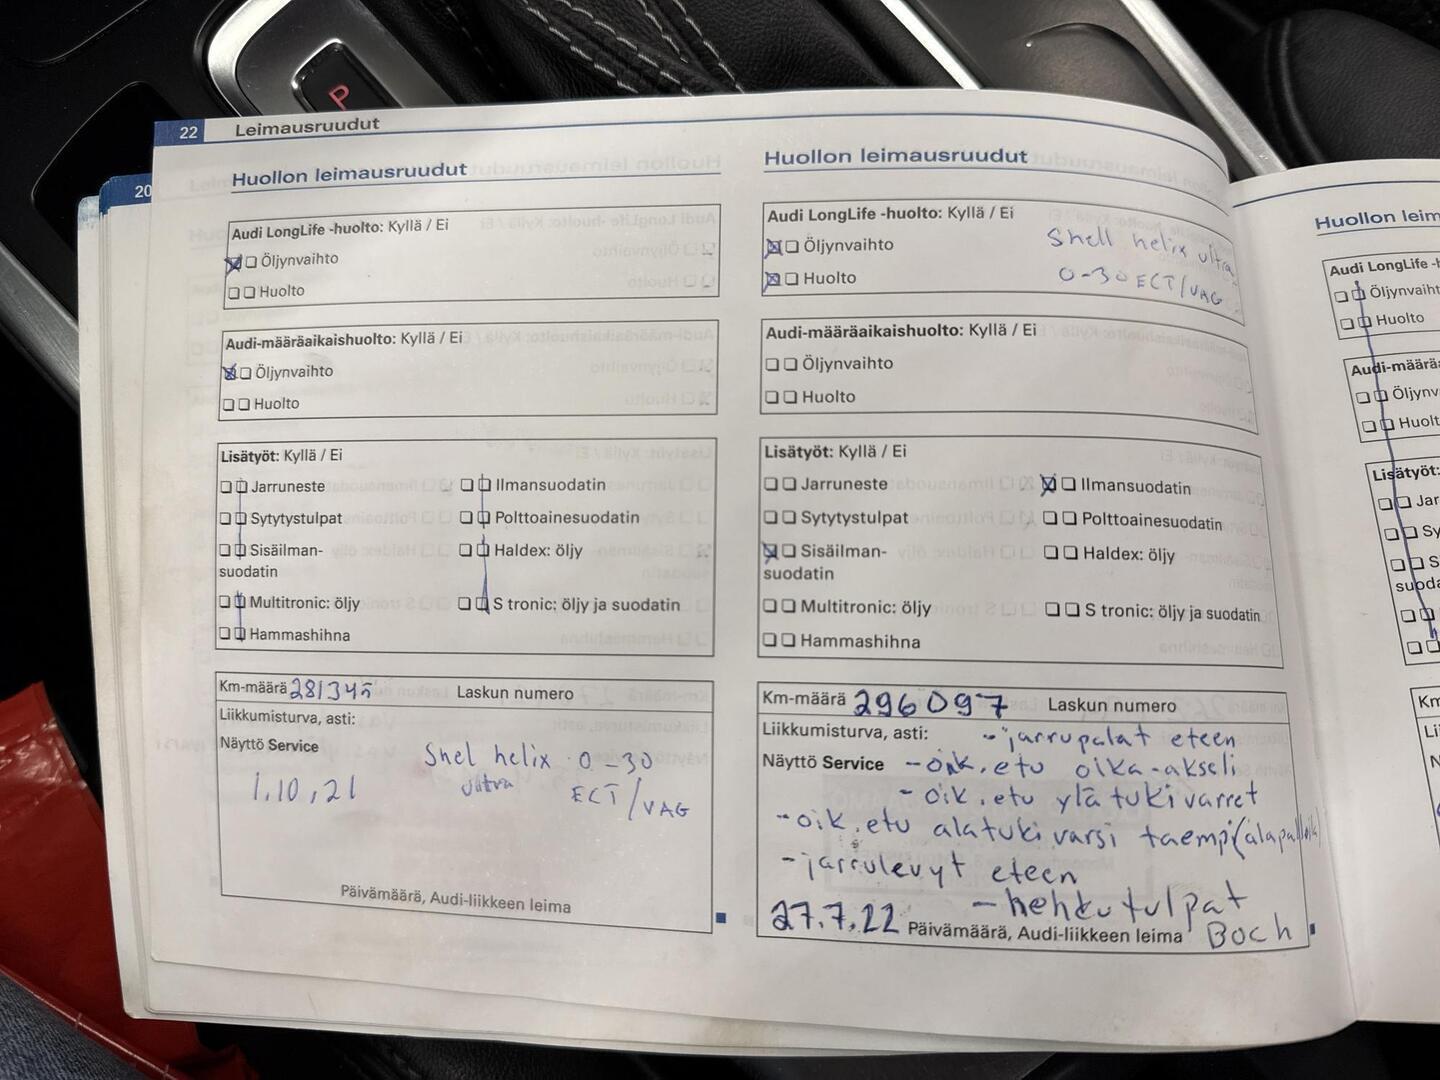 P
22 Leimausruudut
20
Huollon leimausruudut
Audi LongLife -huolto: Kyllä / Ei
Öljynvaihto
Huolto
Audi-määräaikaishuolto: Kyllä / Ei
Öljynvaihto
Huolto
Lisätyöt: Kyllä / Ei
Jarruneste
Ilmansuodatin
Sytytystulpat
Polttoainesuodatin
Sisäilman-
suodatin
Haldex: öljy
Multitronic: öljy
S tronic: öljy ja suodatin
Hammashihna
Km-määrä 281345 Laskun numero
Liikkumisturva, asti:
Näyttö Service
Shel helix 0-30
ultra ECT/VAG
1.10,21
Päivämäärä, Audi-liikkeen leima
Huollon leimausruudut
Audi LongLife -huolto: Kyllä / Ei
Öljynvaihto
Huolto
Shell helix ultra
0-30 ECT/VAG
Audi-määräaikaishuolto: Kyllä / Ei
Öljynvaihto
Huolto
Lisätyöt: Kyllä / Ei
Jarruneste
Ilmansuodatin
Sytytystulpat
Polttoainesuodatin
Sisäilman-
suodatin
Haldex: öljy
Multitronic: öljy
S tronic: öljy ja suodatin
Hammashihna
Km-määrä 296097 Laskun numero
Liikkumisturva, asti: -jarrupalat eteen
Näyttö Service -oik.etu oika-akseli
-oik.etu ylätukivarret
-oik.etu alatukivarsi taempi
-jarrulevyt eteen
-hehkutulpat
27.7.22 Päivämäärä, Audi-liikkeen leima Boch
Huollon leim
Audi LongLife -h
Öljynvaiht
Huolto
Audi-määrä
Öljynv
Huolt
Lisätyöt:
Jar
Sy
S
suoda
Km
Li
N